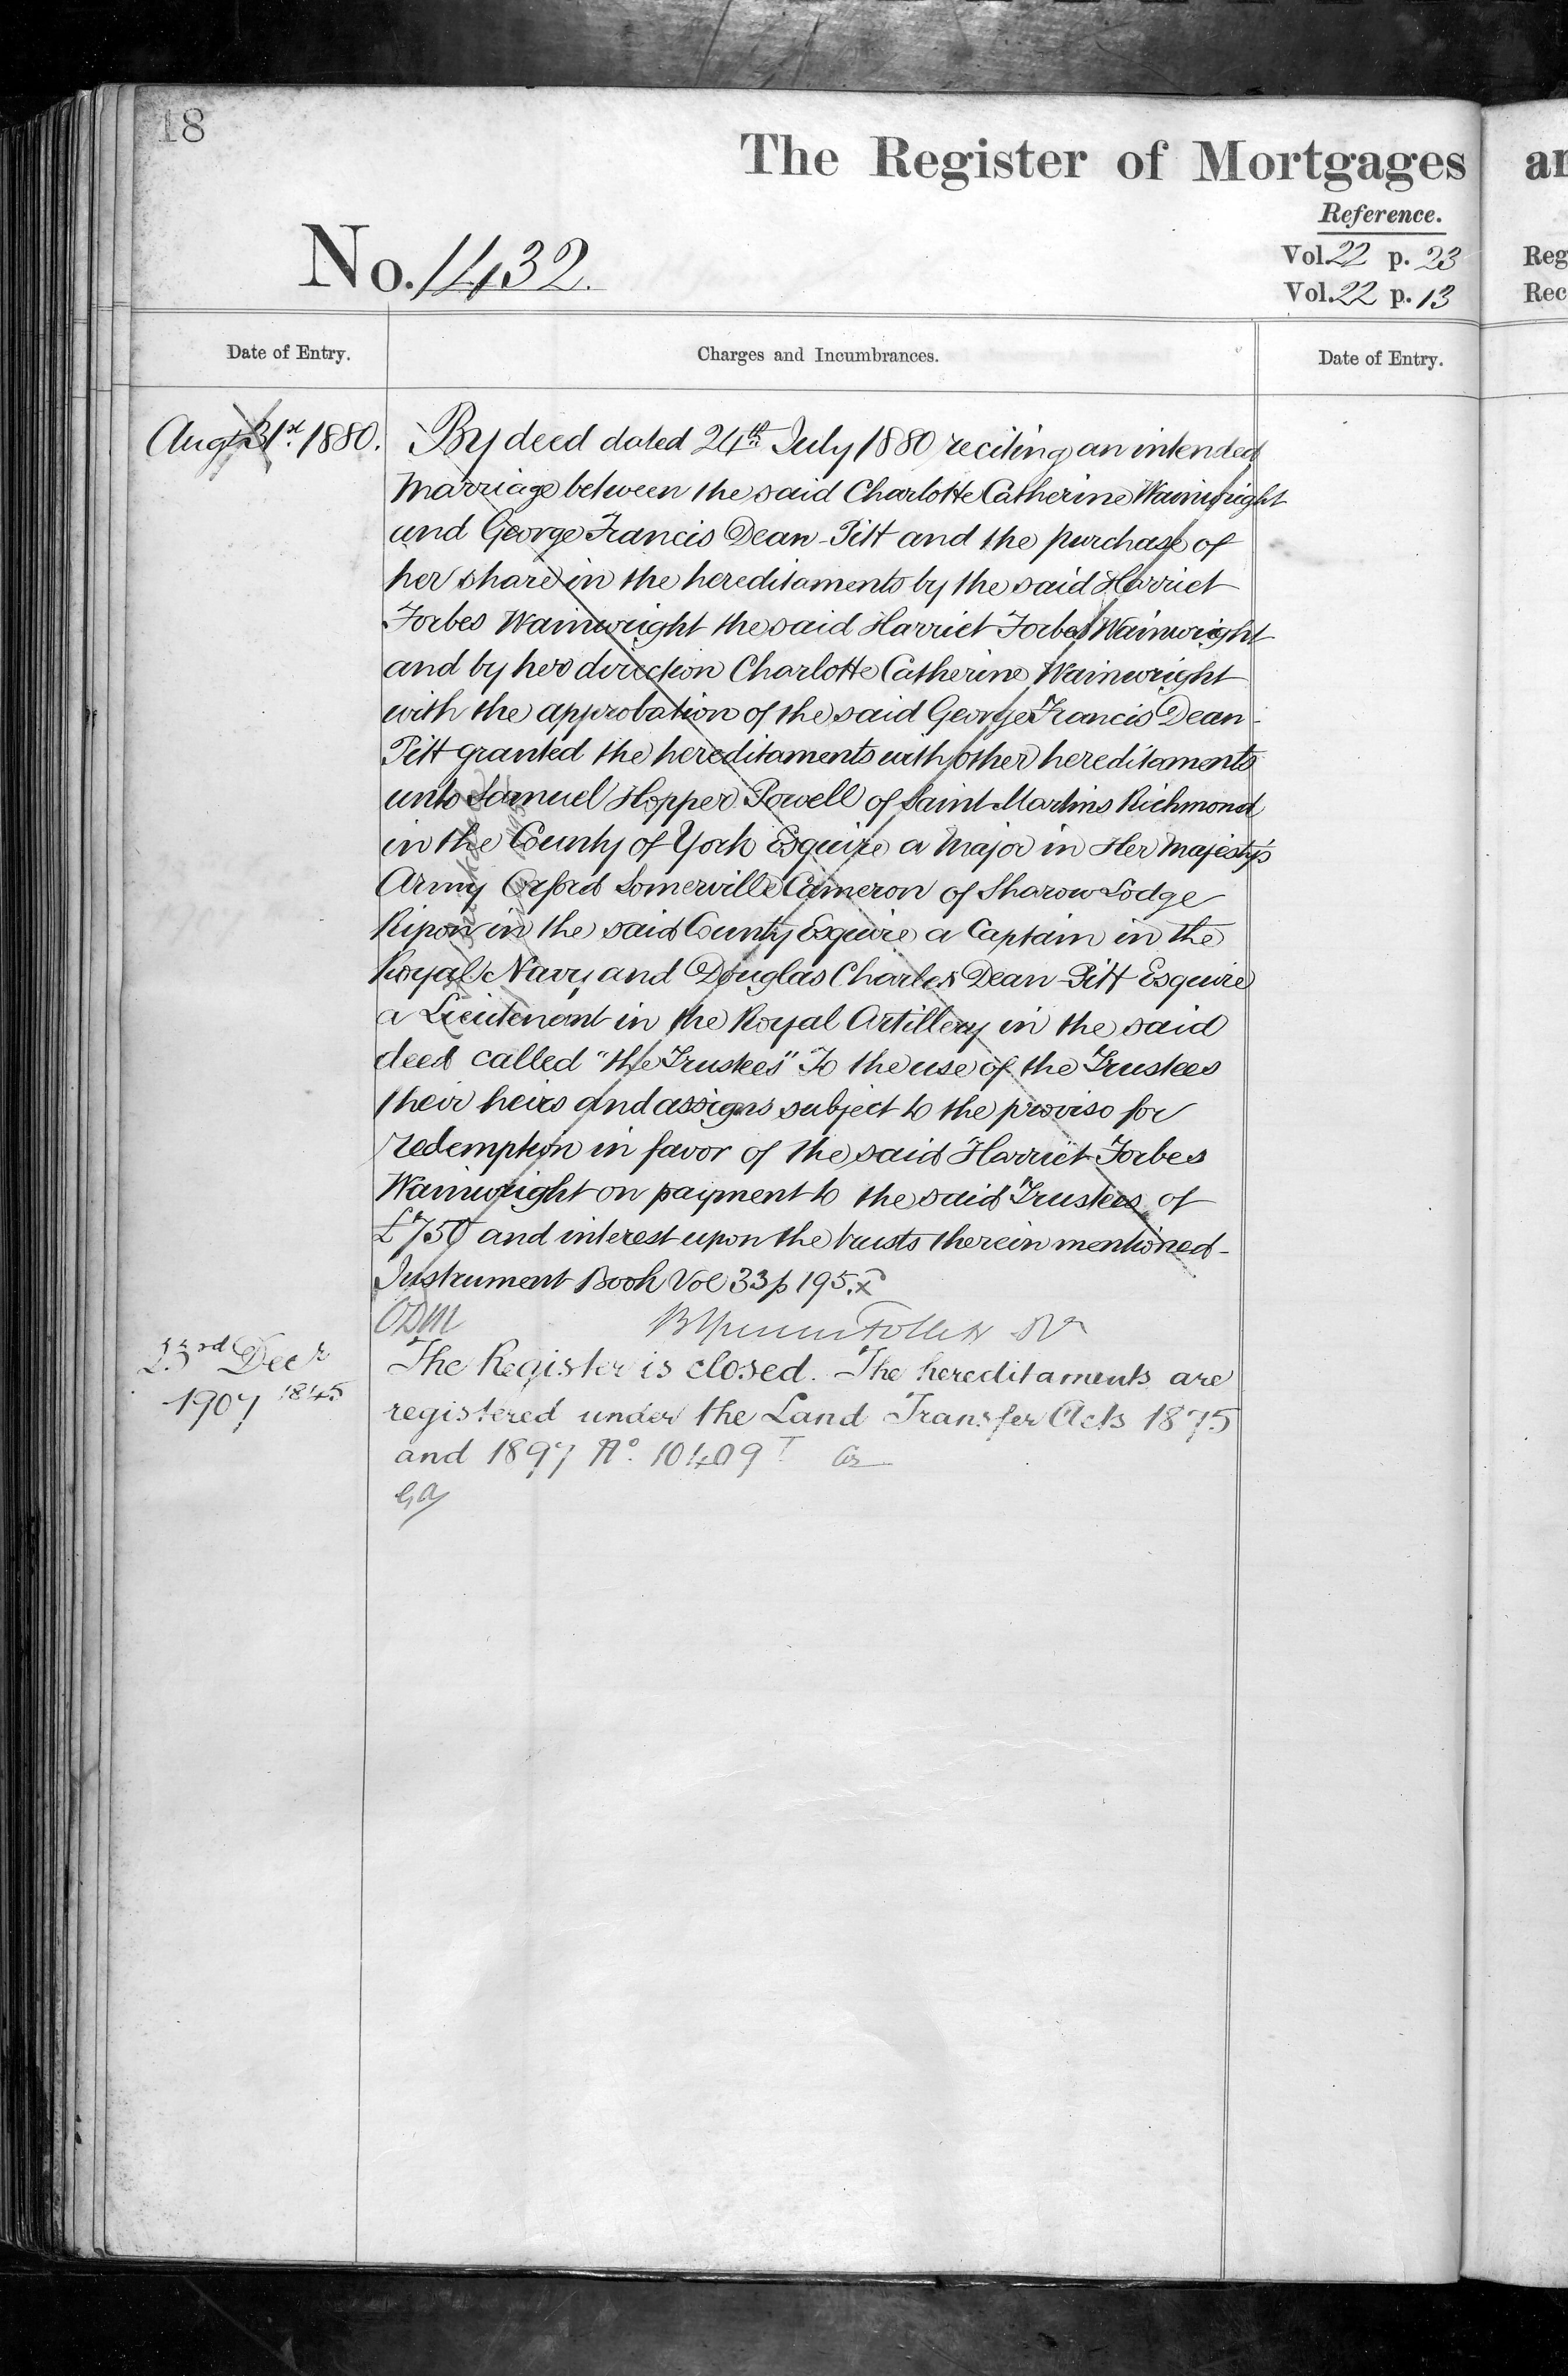 18
The Register of Mortgages
Reference.
No. 1432.
Vol. 22 p. 23
Vol. 22 p. 13
Reg
Rec
Date of Entry.
Charges and Incumbrances.
Date of Entry.
Augt 31st 1880.
By deed dated 24th July 1880 reciting an intended
marriage between the said Charlotte Catherine Wainwright
and George Francis Dean-Pitt and the purchase of
her share in the hereditaments by the said Harriet
Forbes Wainwright the said Harriet Forbes Wainwright
and by her direction Charlotte Catherine Wainwright
with the approbation of the said George Francis Dean-
Pitt granted the hereditaments with other hereditaments
unto Samuel Hopper Powell of Saint Martins Richmond
in the County of York Esquire a Major in Her Majesty's
Army Orford Somerville Cameron of Sharow Lodge
Ripon in the said County Esquire a Captain in the
Royal Navy and Douglas Charles Dean-Pitt Esquire
a Lieutenant in the Royal Artillery in the said
deed called "the Trustees" To the use of the Trustees
their heirs and assigns subject to the proviso for
redemption in favor of the said Harriet Forbes
Wainwright on payment to the said Trustees of
£750 and interest upon the trusts therein mentioned-
Instrument Book Vol 33 p 195.
ODM
23rd Decr
1907 1845
The Register is closed. The hereditaments are
registered under the Land Transfer Acts 1875
and 1897 No. 10409